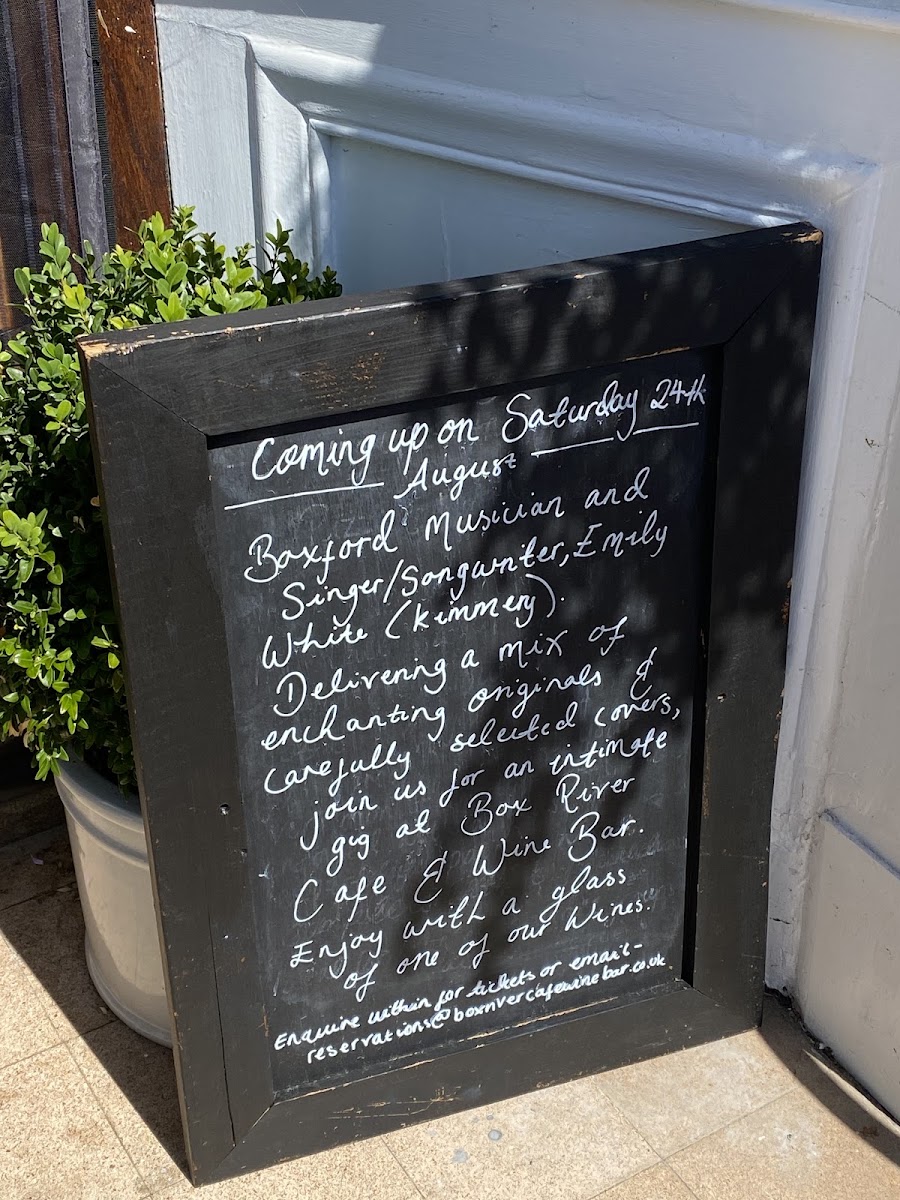 Coming up on Saturday 24th
August
Boxford Musician and
Singer/Songwriter, Emily
White (Kimmery).
Delivering a mix of
enchanting originals &
carefully selected covers,
join us for an intimate
gig at Box River
Cafe & Wine Bar.
Enjoy with a glass
of one of our Wines.
Enquire within for tickets or email-
reservations@boxrivercafewinebar.co.uk